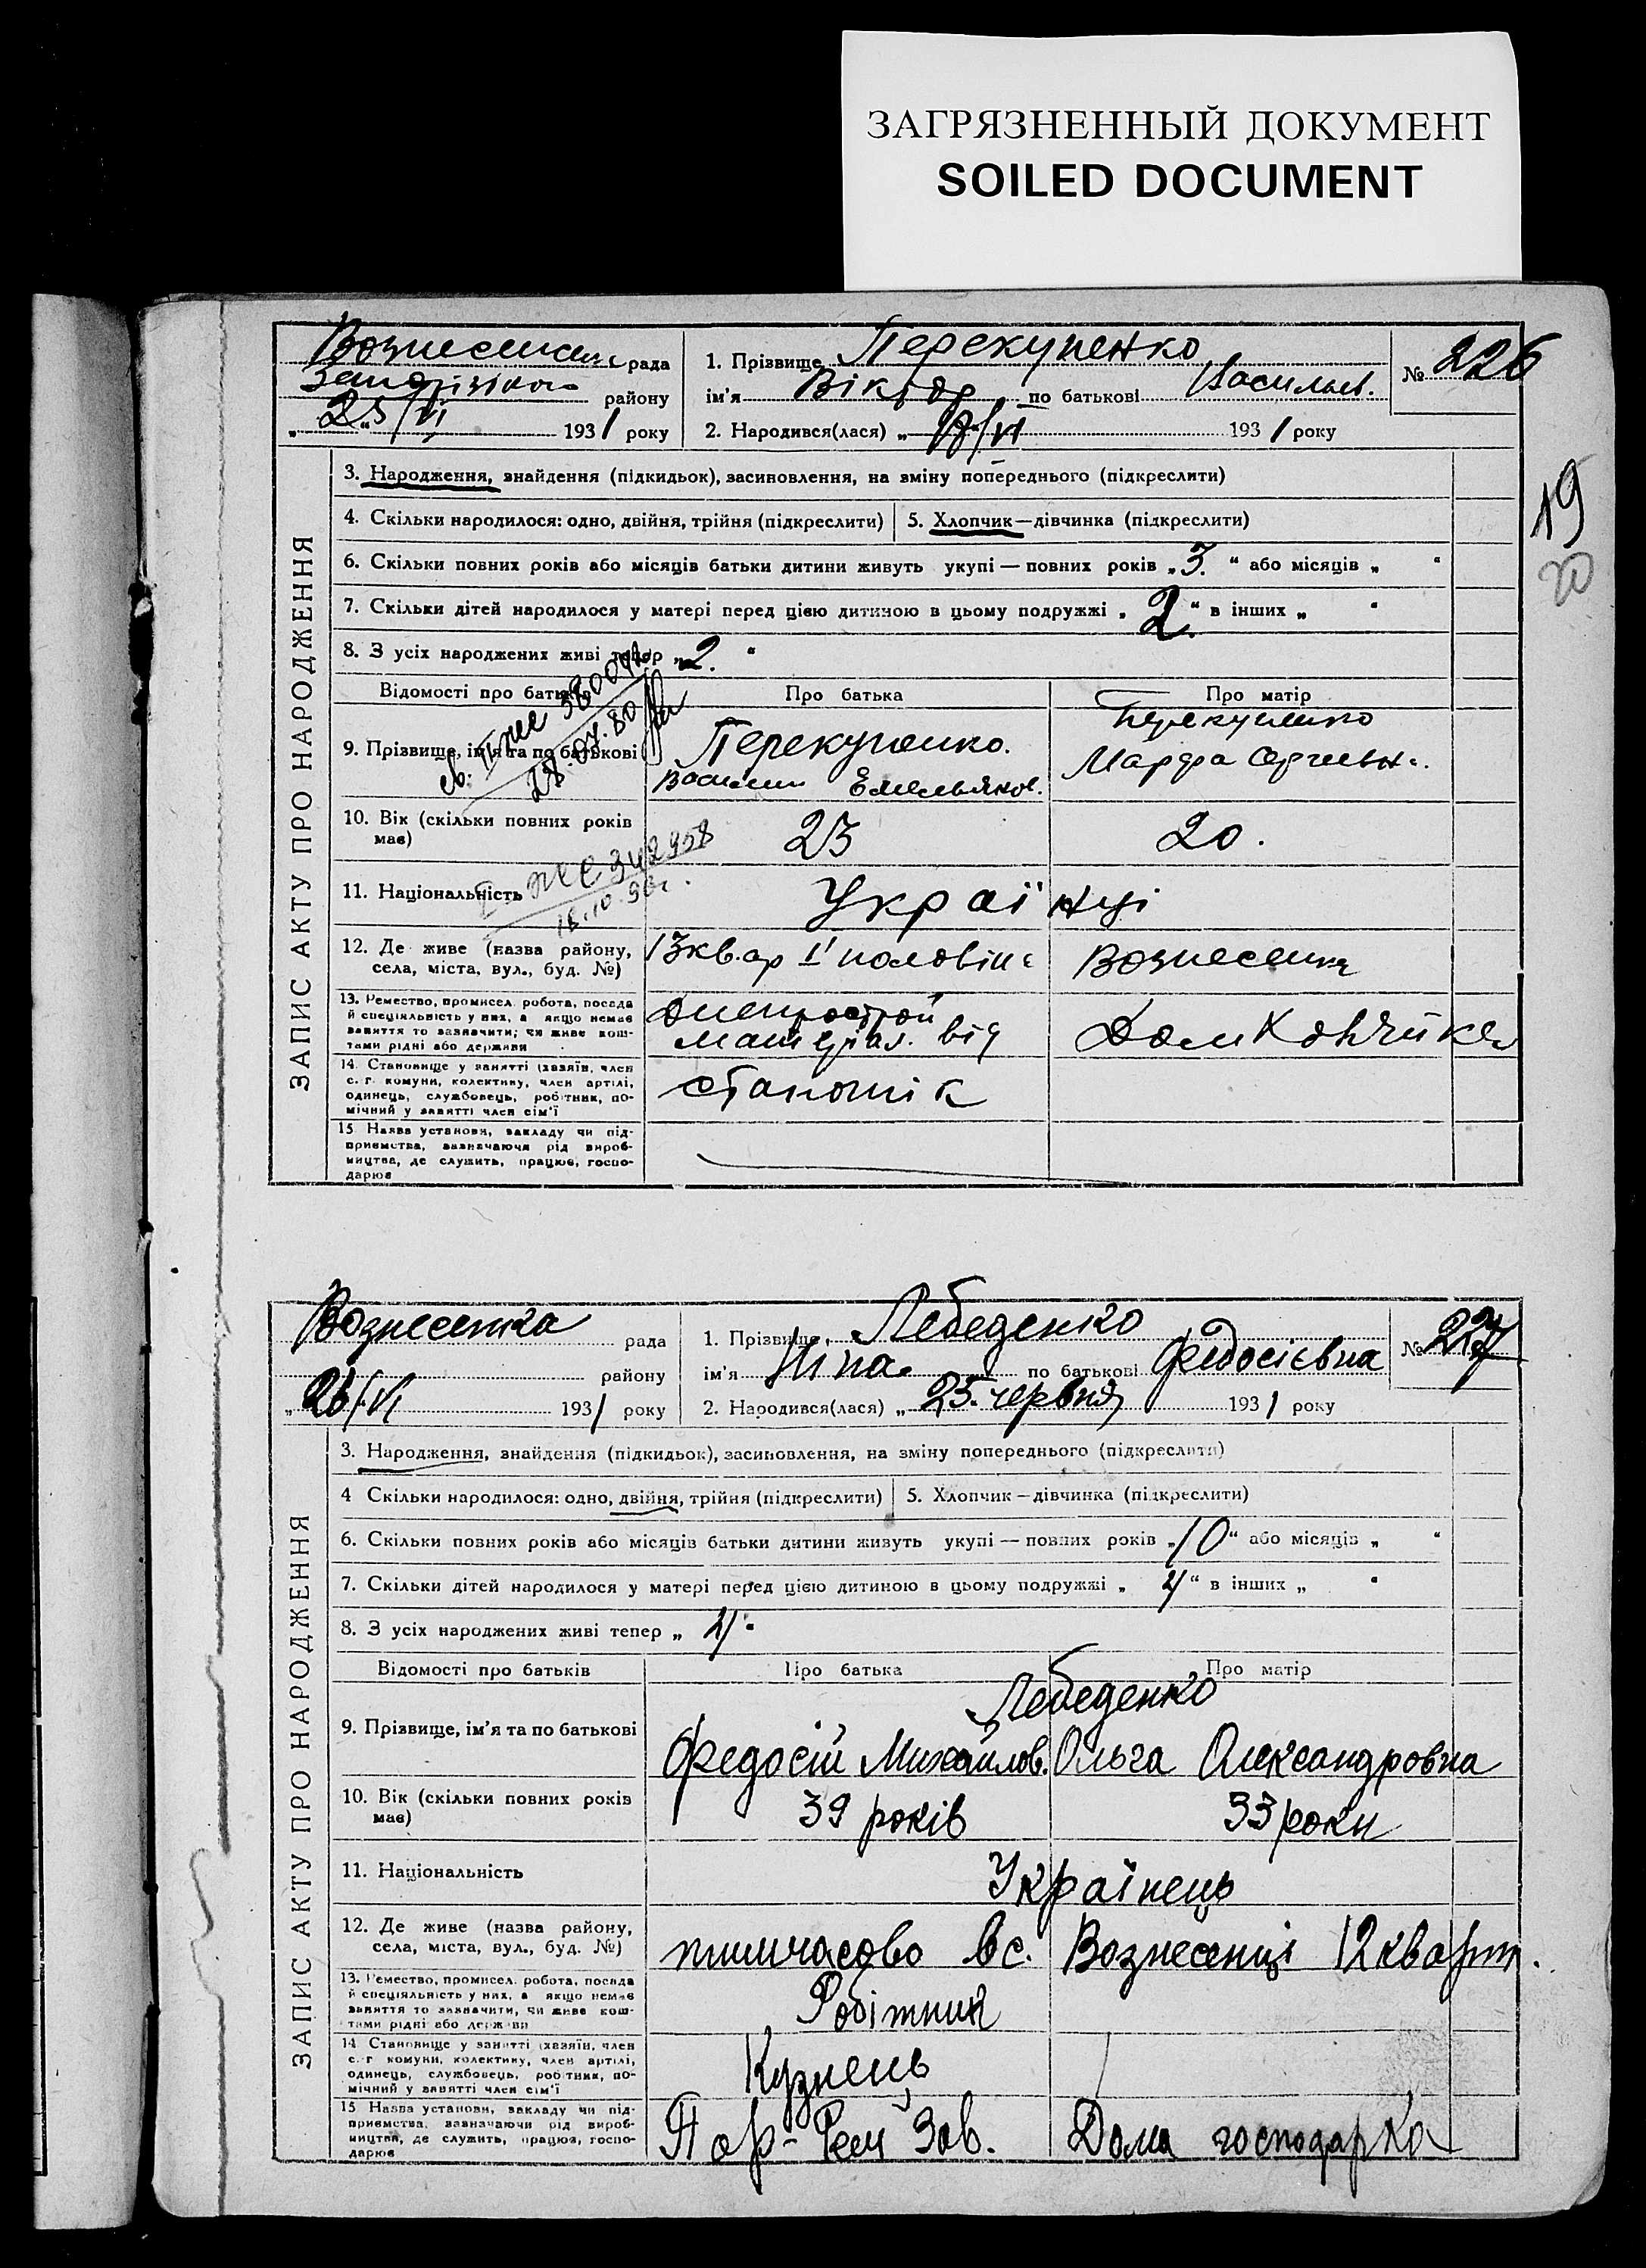 ЗАГРЯЗНЕННЫЙ ДОКУМЕНТ
SOILED DOCUMENT
рада
району
„25/VI 1931 року
1. Прізвище Перекупенко
ім'я Віктор по батькові Васильев.
2. Народився(лася) „ /VI 1931 року
№ 226
19
20
ЗАПИС АКТУ ПРО НАРОДЖЕННЯ
3. Народження, знайдення (підкидьок), засиновлення, на зміну попереднього (підкреслити)
4. Скільки народилося: одно, двійня, трійня (підкреслити)
5. Хлопчик—дівчинка (підкреслити)
6. Скільки повних років або місяців батьки дитини живуть укупі — повних років „3.“ або місяців „ “
7. Скільки дітей народилося у матері перед цією дитиною в цьому подружжі „2.“ в інших „ “
8. З усіх народжених живі тепер „2.“
Відомості про батьків
Про батька
Про матір
28.04.80
9. Прізвище, ім'я та по батькові
Перекупенко.
Емельянов.
Перекупенко
Марфа
10. Вік (скільки повних років має)
23
20.
11. Національність
Українці
12. Де живе (назва району, села, міста, вул., буд. №)
Вознесенка
13. Ремество, промисел, робота, посада й спеціяльність у них, а якщо немає заняття то зазначити; чи живе коштами рідні або держави
Днепрострой
матеріял. від
14. Становище у занятті (хазяїн, член с.-г. комуни, колективу, член артілі, одинець, службовець, робітник, помічний у занятті член сім'ї
15. Назва установи, закладу чи підприємства, зазначаючи рід виробництва, де служить, працює, господарює
Вознесенка рада
району
„26/VI 1931 року
1. Прізвище Лебеденко
ім'я Ніна по батькові Федосієвна
2. Народився(лася) „25 червня 1931 року
№ 227
ЗАПИС АКТУ ПРО НАРОДЖЕННЯ
3. Народження, знайдення (підкидьок), засиновлення, на зміну попереднього (підкреслити)
4 Скільки народилося: одно, двійня, трійня (підкреслити)
5. Хлопчик—дівчинка (підкреслити)
6. Скільки повних років або місяців батьки дитини живуть укупі — повних років „10“ або місяців „ “
7. Скільки дітей народилося у матері перед цією дитиною в цьому подружжі „ “ в інших „ “
8. З усіх народжених живі тепер „
Відомості про батьків
Про батька
Про матір
9. Прізвище, ім'я та по батькові
Лебеденко
Федосій Михайлов.
Ольга Олександровна
10. Вік (скільки повних років має)
39 років
33 роки
11. Національність
Українець
12. Де живе (назва району, села, міста, вул., буд. №)
тимчасово в с. Вознесенці 12 кварт.
13. Ремество, промисел, робота, посада й спеціяльність у них, а якщо немає заняття то зазначити, чи живе коштами рідні або держави
Робітник
14 Становище у занятті (хазяїн, член с.-г комуни, колективу, член артілі, одинець, службовець, робітник, помічний у занятті член сім'ї
Кузнець
15 Назва установи, закладу чи підприємства, зазначаючи рід виробництва, де служить, працює, господарює
Зав.
Дома господарка